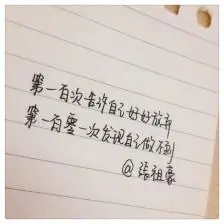 第一百次告诉自己好好放弃
第一百零一次发现自己做不到
@張祖豪